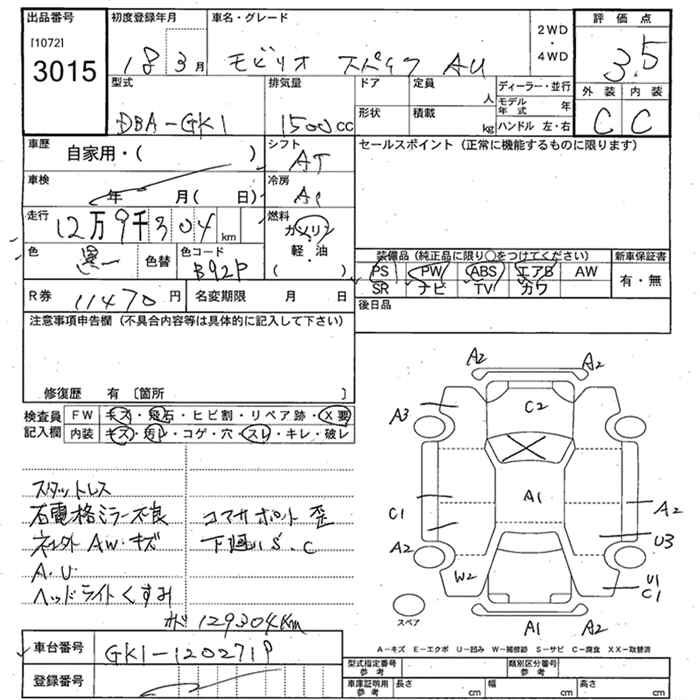 出品番号 初度登録年月 車名・グレード 2WD・4WD 評価点
[1072]
3015 18年3月 モビリオ スパイク AU 3.5
型式 排気量 ドア 定員 人 ディーラー・並行 外装 内装
DBA-GK1 1500cc 形状 積載 kg モデル年式 年 C C
ハンドル 左・右
車歴 自家用・( ) シフト AT セールスポイント (正常に機能するものに限ります)
車検 年 月( 日) 冷房 AC
走行 12万9千304km 燃料 ガソリン
軽・油
( )
色 色替 色コード B92P 装備品 (純正品に限り○をつけてください) 新車保証書
PS PW ABS エアB AW 有・無
SR ナビ TV カワ
R券 11470円 名変期限 月 日 後日品
注意事項申告欄 (不具合内容等は具体的に記入して下さい)
修復歴 有 〔箇所 〕
検査員記入欄 FW キズ・飛石・ヒビ割・リペア跡・X要
内装 キズ・汚レ・コゲ・穴・スレ・キレ・破レ
スタットレス
右電格ミラー不良 コアサポート歪
ネjl外 AW・キズ 下廻りS.C
A.U
ヘッドライトくすみ
129304km
A2 A2
A3 C2
A1
C1 A2
A2 U3
W2 U1
C1
スペア
A1 A2
A-キズ E-エクボ U-凹み W-補修跡 S-サビ C-腐食 XX-取替済
車台番号 GK1-1202719
登録番号
型式指定番号 参考 類別区分番号 参考
車庫証明用 参考 長さ cm 幅 cm 高さ cm